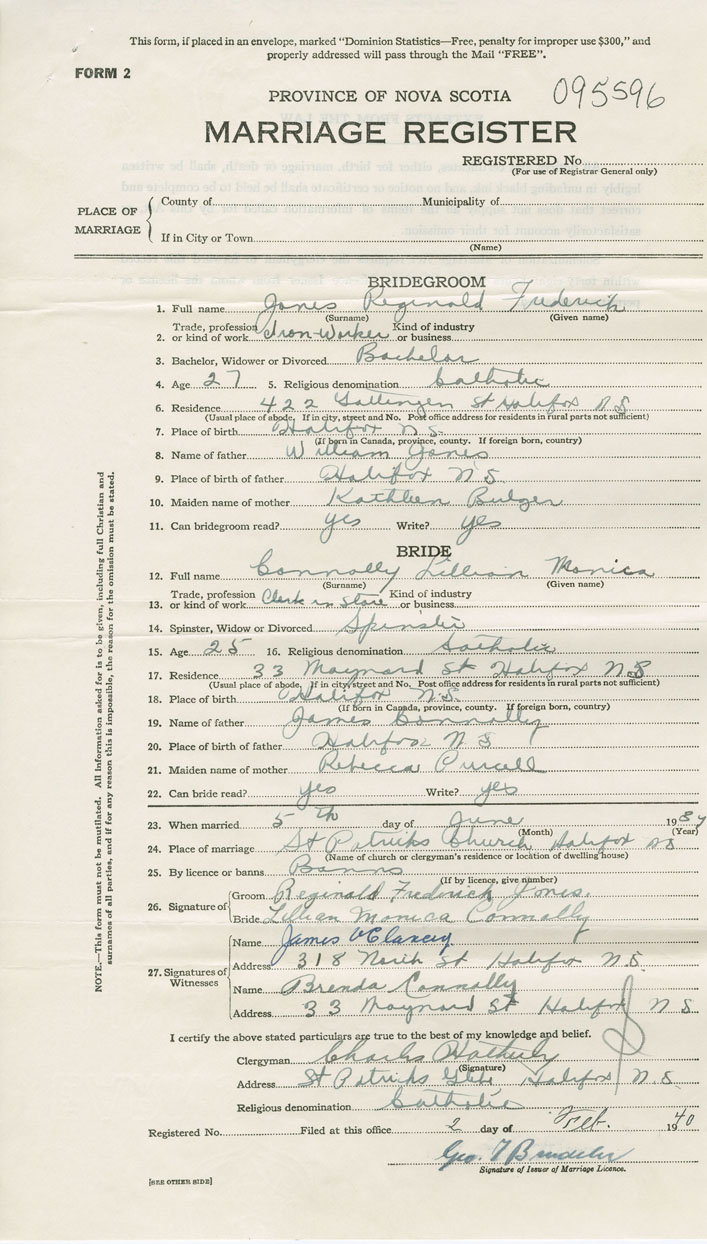 This form, if placed in an envelope, marked "Dominion Statistics—Free, penalty for improper use $300," and
properly addressed will pass through the Mail "FREE".
FORM 2
PROVINCE OF NOVA SCOTIA 095596
MARRIAGE REGISTER
REGISTERED No.
(For use of Registrar General only)
PLACE OF MARRIAGE
County of Municipality of
If in City or Town
(Name)
BRIDEGROOM
1. Full name Jones Reginald Frederick
(Surname) (Given name)
2. Trade, profession or kind of work Iron-Worker Kind of industry or business
3. Bachelor, Widower or Divorced Bachelor
4. Age 27 5. Religious denomination Catholic
6. Residence 422 St Halifax N.S
(Usual place of abode. If in city, street and No. Post office address for residents in rural parts not sufficient)
7. Place of birth Halifax N S.
(If born in Canada, province, county. If foreign born, country)
8. Name of father William Jones
9. Place of birth of father Halifax N.S.
10. Maiden name of mother Kathleen Bulger
11. Can bridegroom read? yes Write? yes
BRIDE
12. Full name Connolly Lillian Monica
(Surname) (Given name)
13. Trade, profession or kind of work Clerk in Store Kind of industry or business
14. Spinster, Widow or Divorced Spinster
15. Age 25 16. Religious denomination Catholic
17. Residence 33 Maynard St Halifax N.S
(Usual place of abode. If in city, street and No. Post office address for residents in rural parts not sufficient)
18. Place of birth Halifax N.S.
(If born in Canada, province, county. If foreign born, country)
19. Name of father James Connolly
20. Place of birth of father Halifax N.S
21. Maiden name of mother Rebecca Purcell
22. Can bride read? yes Write? yes
23. When married 5th day of June 19
(Month) (Year)
24. Place of marriage St Patricks Church Halifax NS
(Name of church or clergyman's residence or location of dwelling house)
25. By licence or banns Banns
(If by licence, give number)
26. Signature of
Groom Reginald Frederick Jones.
Bride Lillian Monica Connolly
27. Signatures of Witnesses
Name James O'Clancey
Address 318 North St Halifax N.S.
Name Brenda Connolly
Address 33 Maynard St Halifax N S
I certify the above stated particulars are true to the best of my knowledge and belief.
Clergyman Charles
(Signature)
Address St Patricks Glebe Halifax N.S.
Religious denomination Catholic
Registered No. Filed at this office 2 day of Feb. 1940
Geo. T
Signature of Issuer of Marriage Licence.
[SEE OTHER SIDE]
NOTE.—This form must not be mutilated. All information asked for is to be given, including full Christian and
surnames of all parties, and if for any reason this is impossible, the reason for the omission must be stated.